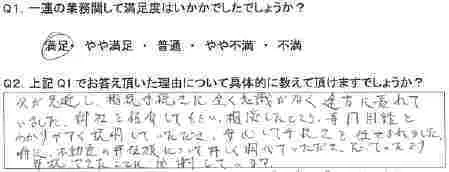 Q1. 一連の業務関して満足度はいかかでしたでしょうか?
満足・ やや満足 ・ 普通 ・ やや不満 ・ 不満
Q2. 上記Q1でお答え頂いた理由について具体的に教えて頂けますでしょうか?
父が他界し、相続手続きに全く知識がなく、途方に暮れて
いました。 して 相談したところ、専門用語を
わかりやすく説明していただき、安心して手続きを任せられました。
特に、不動産の について詳しく調べていただき、
していただいたことに感謝しています。